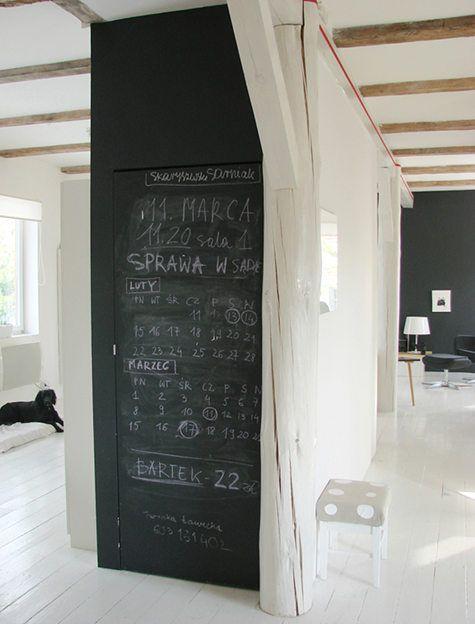 11. MARCA
11.20 sala 1
SPRAWA W SĄDZIE
LUTY
PN WT ŚR CZ P S N
11 13 14
15 16 17 18 19 20 21
22 23 24 25 26 27 28
MARZEC
PN WT ŚR CZ P S N
1 2 3 4 5 6 7
8 9 10 11 12 13 14
15 16 17 18 19 20
BARTEK - 22